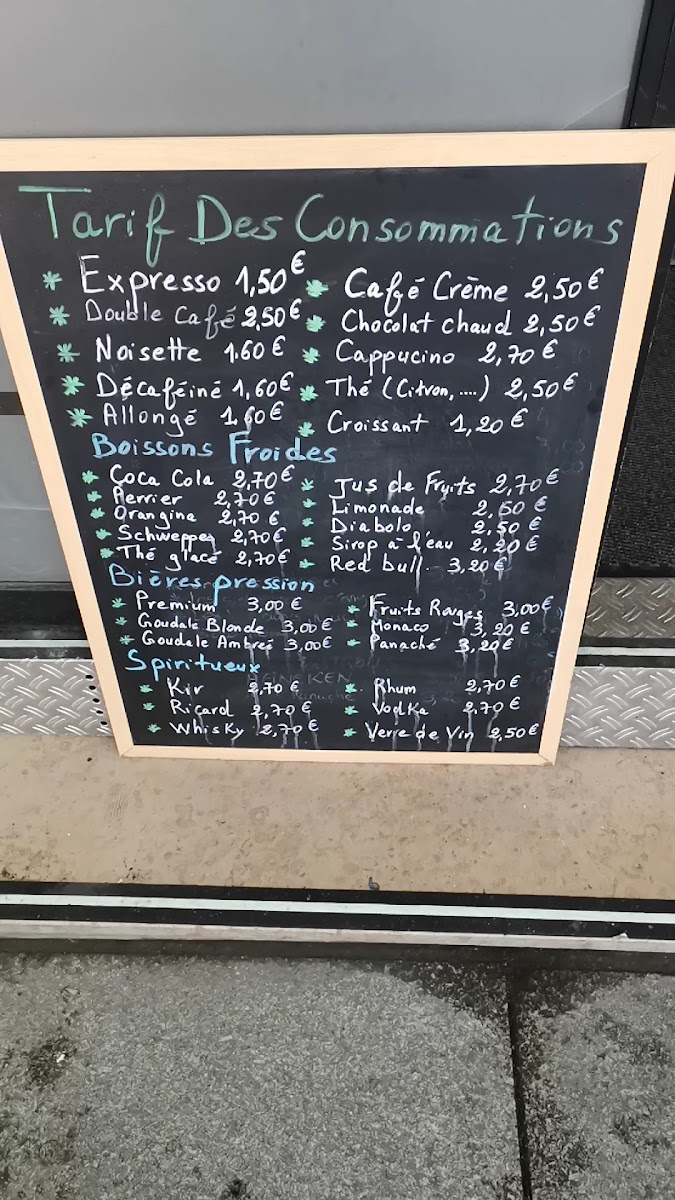 Tarif Des Consommations
* Expresso 1,50€ * Café Crème 2,50€
* Double Café 2,50€ * Chocolat chaud 2,50€
* Noisette 1.60€ * Cappucino 2,70€
* Décaféiné 1,60€ * Thé (Citron, ....) 2,50€
* Allongé 1,60€ * Croissant 1,20€
Boissons Froides
* Coca Cola 2,70€ * Jus de Fruits 2,70€
* Perrier 2,70€ * Limonade 2,50€
* Orangina 2,70€ * Diabolo 2,50€
* Schweppes 2,70€ * Sirop à l'eau 2,20€
* Thé glacé 2,70€ * Red bull. 3,20€
Bières pression
* Premium 3,00€ * Fruits Rouges 3,00€
* Goudale Blonde 3,00€ * Monaco 3,20€
* Goudale Ambrée 3,00€ * Panaché 3,20€
Spiritueux
HEINEKEN
* Kir 2,70€ * Rhum 2,70€
* Ricard 2,70€ * Vodka 2,70€
* Whisky 2,70€ * Verre de Vin 2,50€